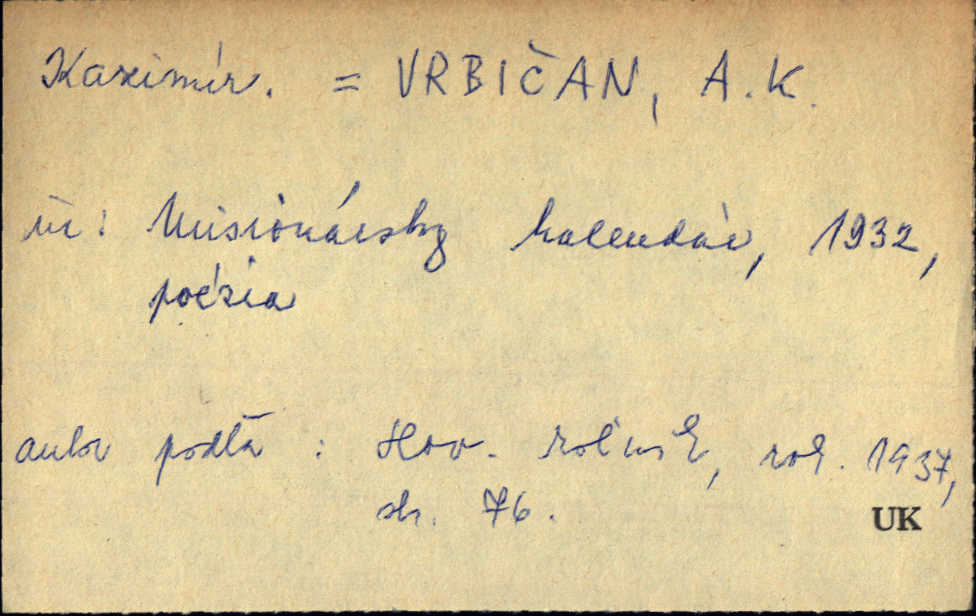 Kazimír. = VRBIČAN, A.K.
in: Misionársky kalendár, 1932,
poézia
autor podľa : Slov. roľník, rok. 1937,
str. 76.
UK